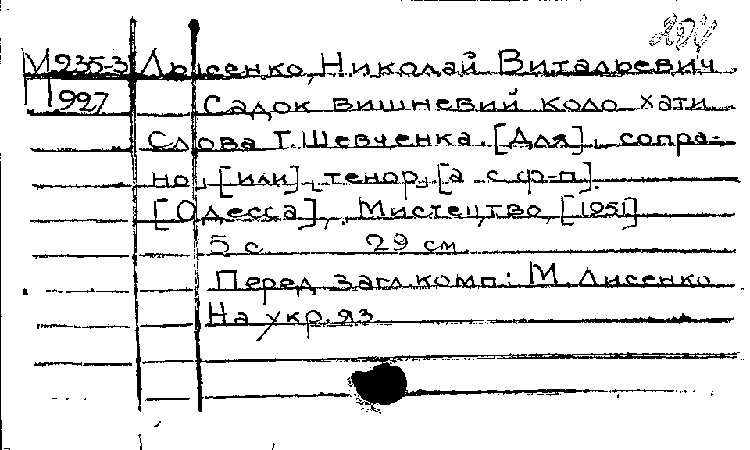 204
М235-3 Лысенко, Николай Витальевич
П997 Садок вишневий коло хати
Слова Т. Шевченка. [Для] сопра-
но [или] тенор[а с ф-п].
[Одесса], Мистецтво, [1951]
5 с. 29 см.
Перед загл. комп.: М. Лисенко
На укр. яз.